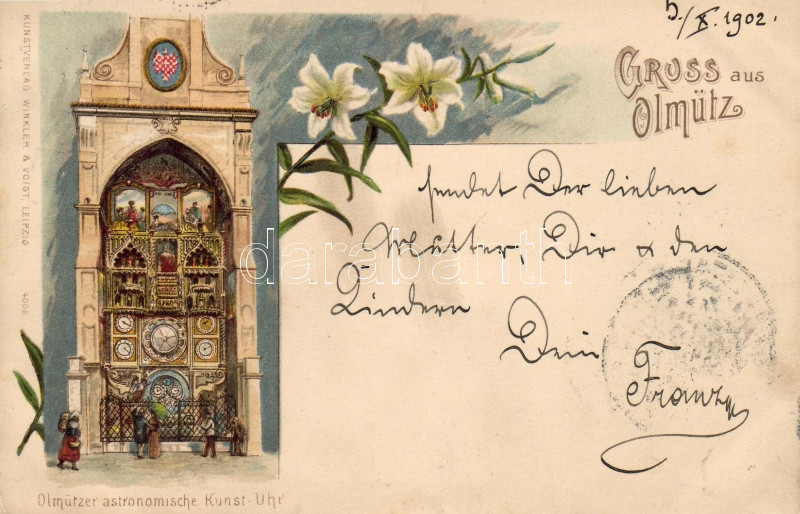 5./X. 1902.
GRUSS aus
Olmütz
sendet Der lieben
Mutter, Dir & den
Kindern
Dein
Franz
KUNSTVERLAG WINKLER & VOIGT, LEIPZIG.
4006
Olmützer astronomische Kunst-Uhr
darabanth